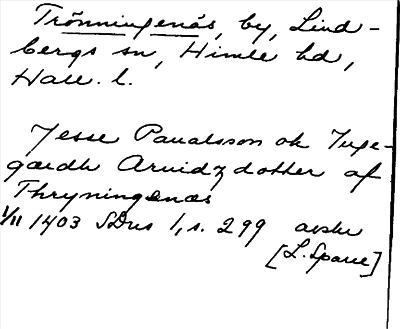 Trönningenäs, by, Lind-
bergs sn, Himle hd,
Hall. l.
Jesse Paualsson ok Inge-
gærdh Aruidzdotter af
Thryningenæs
1/11 1403 SDns 1, s. 299 avskr
[L. Sparre]